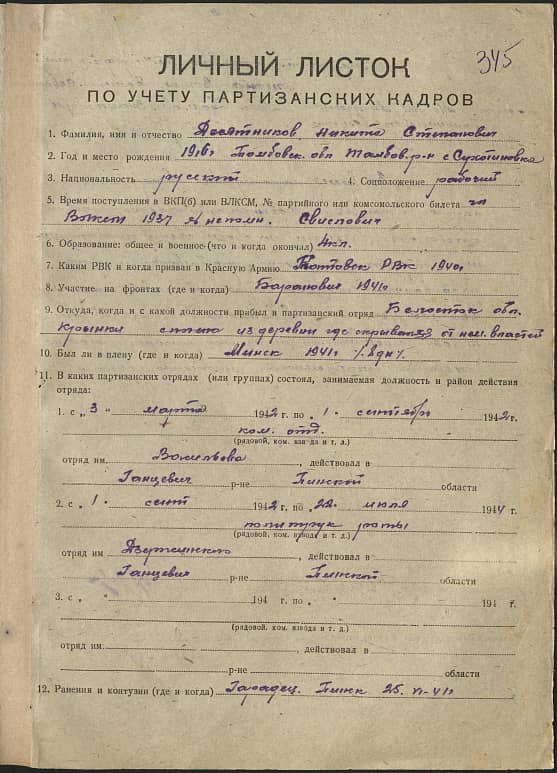 345
ЛИЧНЫЙ ЛИСТОК
ПО УЧЕТУ ПАРТИЗАНСКИХ КАДРОВ
1. Фамилия, имя и отчество Десятников Никита Степанович
2. Год и место рождения 1916г Тамбовск. обл Тамбов. р-н с Сухотиновка
3. Национальность русский 4. Соцположение рабочий
5. Время поступления в ВКП(б) или ВЛКСМ, № партийного или комсомольского билета чл
Влксм 1937 № непомн. Свислович
6. Образование: общее и военное (что и когда окончал) 4кл.
7. Каким РВК и когда призван в Красную Армию РВК 1940г
8. Участие на фронтах (где и когда) Баранович 1941г
9. Откуда, когда и с какой должности прибыл в партизанский отряд Белосток обл.
Крынки из деревни где скрывался от нем. властей
10. Был ли в плену (где и когда) Минск 1941г 1. 8 дн.
11. В каких партизанских отрядах (или группах) состоял, занимаемая должность и район действия
отряда:
1. с „ 3 " марта 1942 г. по „ 1 · сентябрь 1942 г.
ком. отд.
(рядовой, ком. взвода и т. д.)
отряд им. Васильева , действовал в
Ганцевич р-не Пинской области
2. с „ 1 · сент 1942 г. по „ 22 · июля 1944 г.
политрук роты
(рядовой, ком. взвода и т. д.)
отряд им Дзержинского , действовал в
Ганцевич р-не Пинской области
3. с „ " 194 г. по „ " 194 г.
(рядовой, ком. взвода и т. д.)
отряд им. , действовал в
р-не области
12. Ранения и контузии (где и когда) Гарадец. Пинк 25. VI-41г